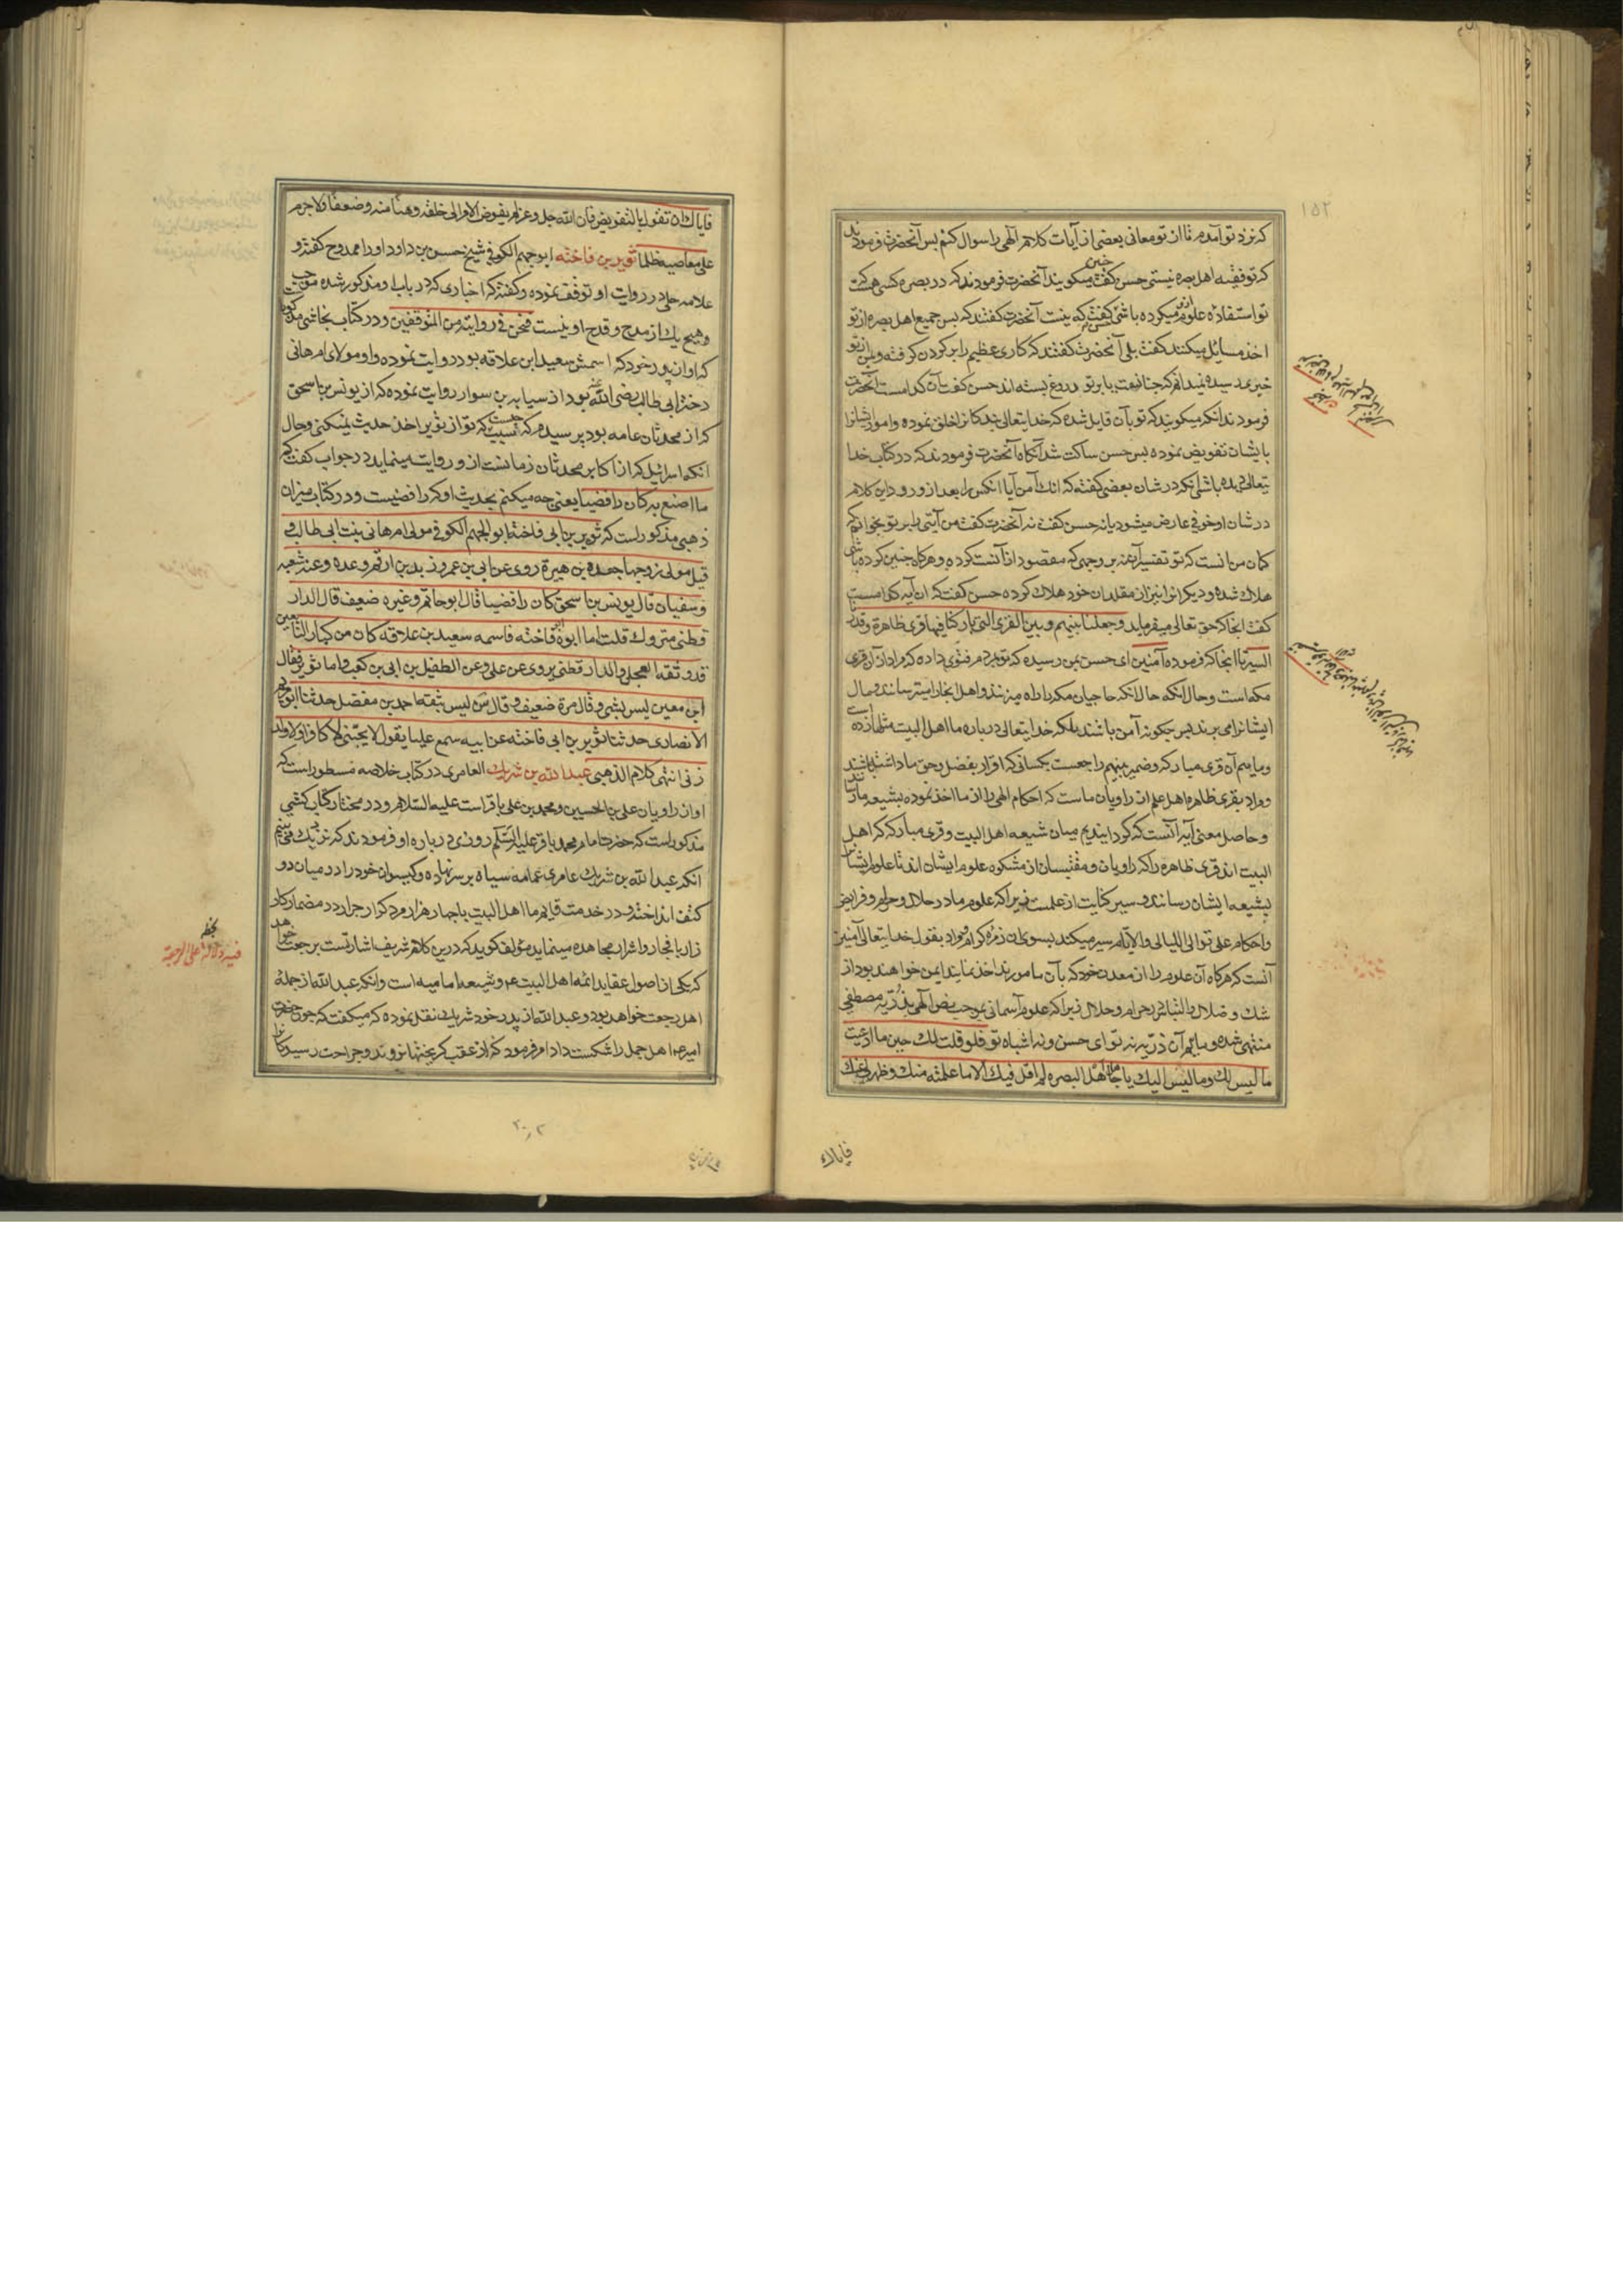 ۱۵۲
که نزد تو آمدم تا از تو معانی بعضی از آیات کلام الهی را سوال کنم پس آنحضرت فرمودند
که تو فقیه اهل بصره نیستی حسن گفت چنین میکویند آنحضرت فرمودند که در بصره کسی هست که
تو استفاده علوم ازو میکرده باشی گفت که نیست آنحضرت گفتند که پس جمیع اهل بصره از تو
اخذ مسائل میکنند گفت بلی آنحضرت گفتند که کاری عظیم را بر کردن گرفته و بمن از تو
خبری رسیده نمیدانم که چنانست یا بر تو دروغ بسته اند حسن گفت آن کدامست آنحضرت
فرمودند انکه میکویند که تو بآن قایل شده که خدایتعالی بندکانرا خلق نموده و امور ایشانرا
بایشان تفویض نموده پس حسن ساکت شد آنگاه آنحضرت فرمودند که در کتاب خدا
تعالی دیده باشی که در شان بعضی گفته که انک آمن آیا انکس را بعد از ورود این کلام
در شان او خوفی عارض میشود یا نه حسن گفت نه آنحضرت گفت من آیتی را بر تو بخوانم که
کمان من آنست که تو تفسیر آن بر وجهی که مقصود از آنست کرده و هرگاه چنین کرده باشی
هلاک شده و دیگرانرا نیز از مقلدان خود هلاک کرده حسن گفت که ان آیه کدامست
گفت انجا که حق تعالی میفرماید وجعلنا بینهم وبین القری التی بارکنا فیها قری ظاهرة وقدرنا
السیر تا انجا که فرموده آمنین ای حسن بمن رسیده که تو بمردم فتوی داده که مراد از آن قری
مکه است و حال انکه حال انکه حاجیان مکه را راه میزنند و اهل انجا را میترسانند و مال
ایشانرا می برند پس چگونه آمن باشند بلکه خدایتعالی در باره ما اهل البیت مثلها زده است
و ماییم آن قری مبارکه و ضمیر بینهم راجعست بکسانی که اقرار بفضل و حق ما داشته باشند
و مراد بقری ظاهره اهل علم از راویان ماست که احکام الهی را از ما اخذ نموده بشیعه ما رسانند
و حاصل معنی آیه آنست که گردانیدیم میان شیعه اهل البیت و قری مبارکه که اهل
البیت اند قری ظاهره را که راویان و مقتبسان از مشکوه علوم ایشان اند تا علوم ایشانرا
بشیعه ایشان رسانند و سیر کنایت از علمست زیرا که علوم ما در حلال و حرام و فرایض
و احکام علی توالی اللیالی والایام سیر میکند بسوی این زمره کرام و مراد بقول خدایتعالی آمنین
آنست که هرگاه آن علوم را از معدن خود که بآن مامورند اخذ نمایند ایمن خواهند بود از
شک و ضلال و التباس در حرام و حلال زیرا که علوم آسمانی بموجب نص الهی بذریه مصطفی
منتهی شده و ماییم آن ذریه نه تو ای حسن و نه اشباه تو فلو قلت لک حین ما ادعیت
ما لیس لک و ما لیس الیک یا جاهل اهل البصره لم اقل فیک الا ما علمته منک و ظهر لی عنک
فایاک
فایاک ان تقول بالتفویض فان الله جل و عز لم یفوض الامر الی خلقه وهنا منه و ضعفا و لا جبرهم
علی معاصیه ظلما ثویر بن فاخته ابو جهم الکوفی شیخ حسن بن داود او را ممدوح گفته و
علامه حلی در روایت او توقف نموده و گفته که اخباری که در باب او مذکور شده موجب
و هیچ یک از مدح و قدح او نیست فنحن فی روایته من المتوقفین و در کتاب نجاشی مذکور است
که او از پدر خود که اسمش سعید ابن علاقه بود روایت نموده و او مولای ام هانی
دختر ابی طالب رضی الله عنه بود از سیابه بن سوار روایت نموده که از یونس بن اسحق
که از محدثان عامه بود پرسیدم که چیست سبب که تو از ثویر اخذ حدیث نمیکنی و حال
انکه اسرائیل که از اکابر محدثان زمانست ازو روایت مینماید در جواب گفت که
ما اصنع به کان رافضیا یعنی چه میکنم بحدیث او که رافضیست و در کتاب میزان
ذهبی مذکور است که ثویر بن ابی فاخته ابو الجهم الکوفی مولی ام هانی بنت ابی طالب و
قیل مولی زوجها جعده بن هبیرة روی عن ابن عمر و زید بن ارقم و عده و عنه شعبه
و سفیان قال یونس بن اسحق کان رافضیا قال ابو حاتم و غیره ضعیف قال الدار
قطنی متروک قلت اما ابوه ابو فاخته فاسمه سعید بن علاقه کان من کبار التابعین
قد وثقه العجلی و الدار قطنی یروی عن علی و عن الطفیل بن ابی بن کعب و اما ثویر فقال
ابن معین لیس بشی و قال مرة ضعیف و قال س لیس بثقه احمد بن مفضل حدثنا ابو مریم
الانصاری حدثنا ثویر بن ابی فاخته عن ابیه سمع علیا یقول لا یحبنی کافر و لا ولد
زنی انتهی کلام الذهبی عبد الله بن شریک العامری در کتاب خلاصه مسطور است که
او از راویان علی بن الحسین و محمد بن علی باقر است علیه السلام و در مختار کتاب کشی
مذکور است که حضرت امام محمد باقر علیه السلم روزی در باره او فرمودند که نزدیک می بینم
انکه عبد الله بن شریک عامری عمامه سیاه بر سر نهاده و گیسوان خود را در میان دو
کتف انداخته و در خدمت قایم ما اهل البیت با چهار هزار مرد کرار جرار در مضمار کار
زار با فجار و اشرار مجاهده مینماید مؤلف گوید که درین کلام شریف اشارتست برجعت
که یکی از اصول عقاید ائمه اهل البیت ع م و شیعه امامیه است و انکه عبد الله از جمله
اهل رجعت خواهد بود و عبد الله از پدر خود شریک نقل نموده که میگفت که چون حضرت
امیر ع م اهل جمل را شکست داد امر فرمود که از عقب گریختها نروند و جراحت رسیدکانرا
فیه دلالة علی الرجعة